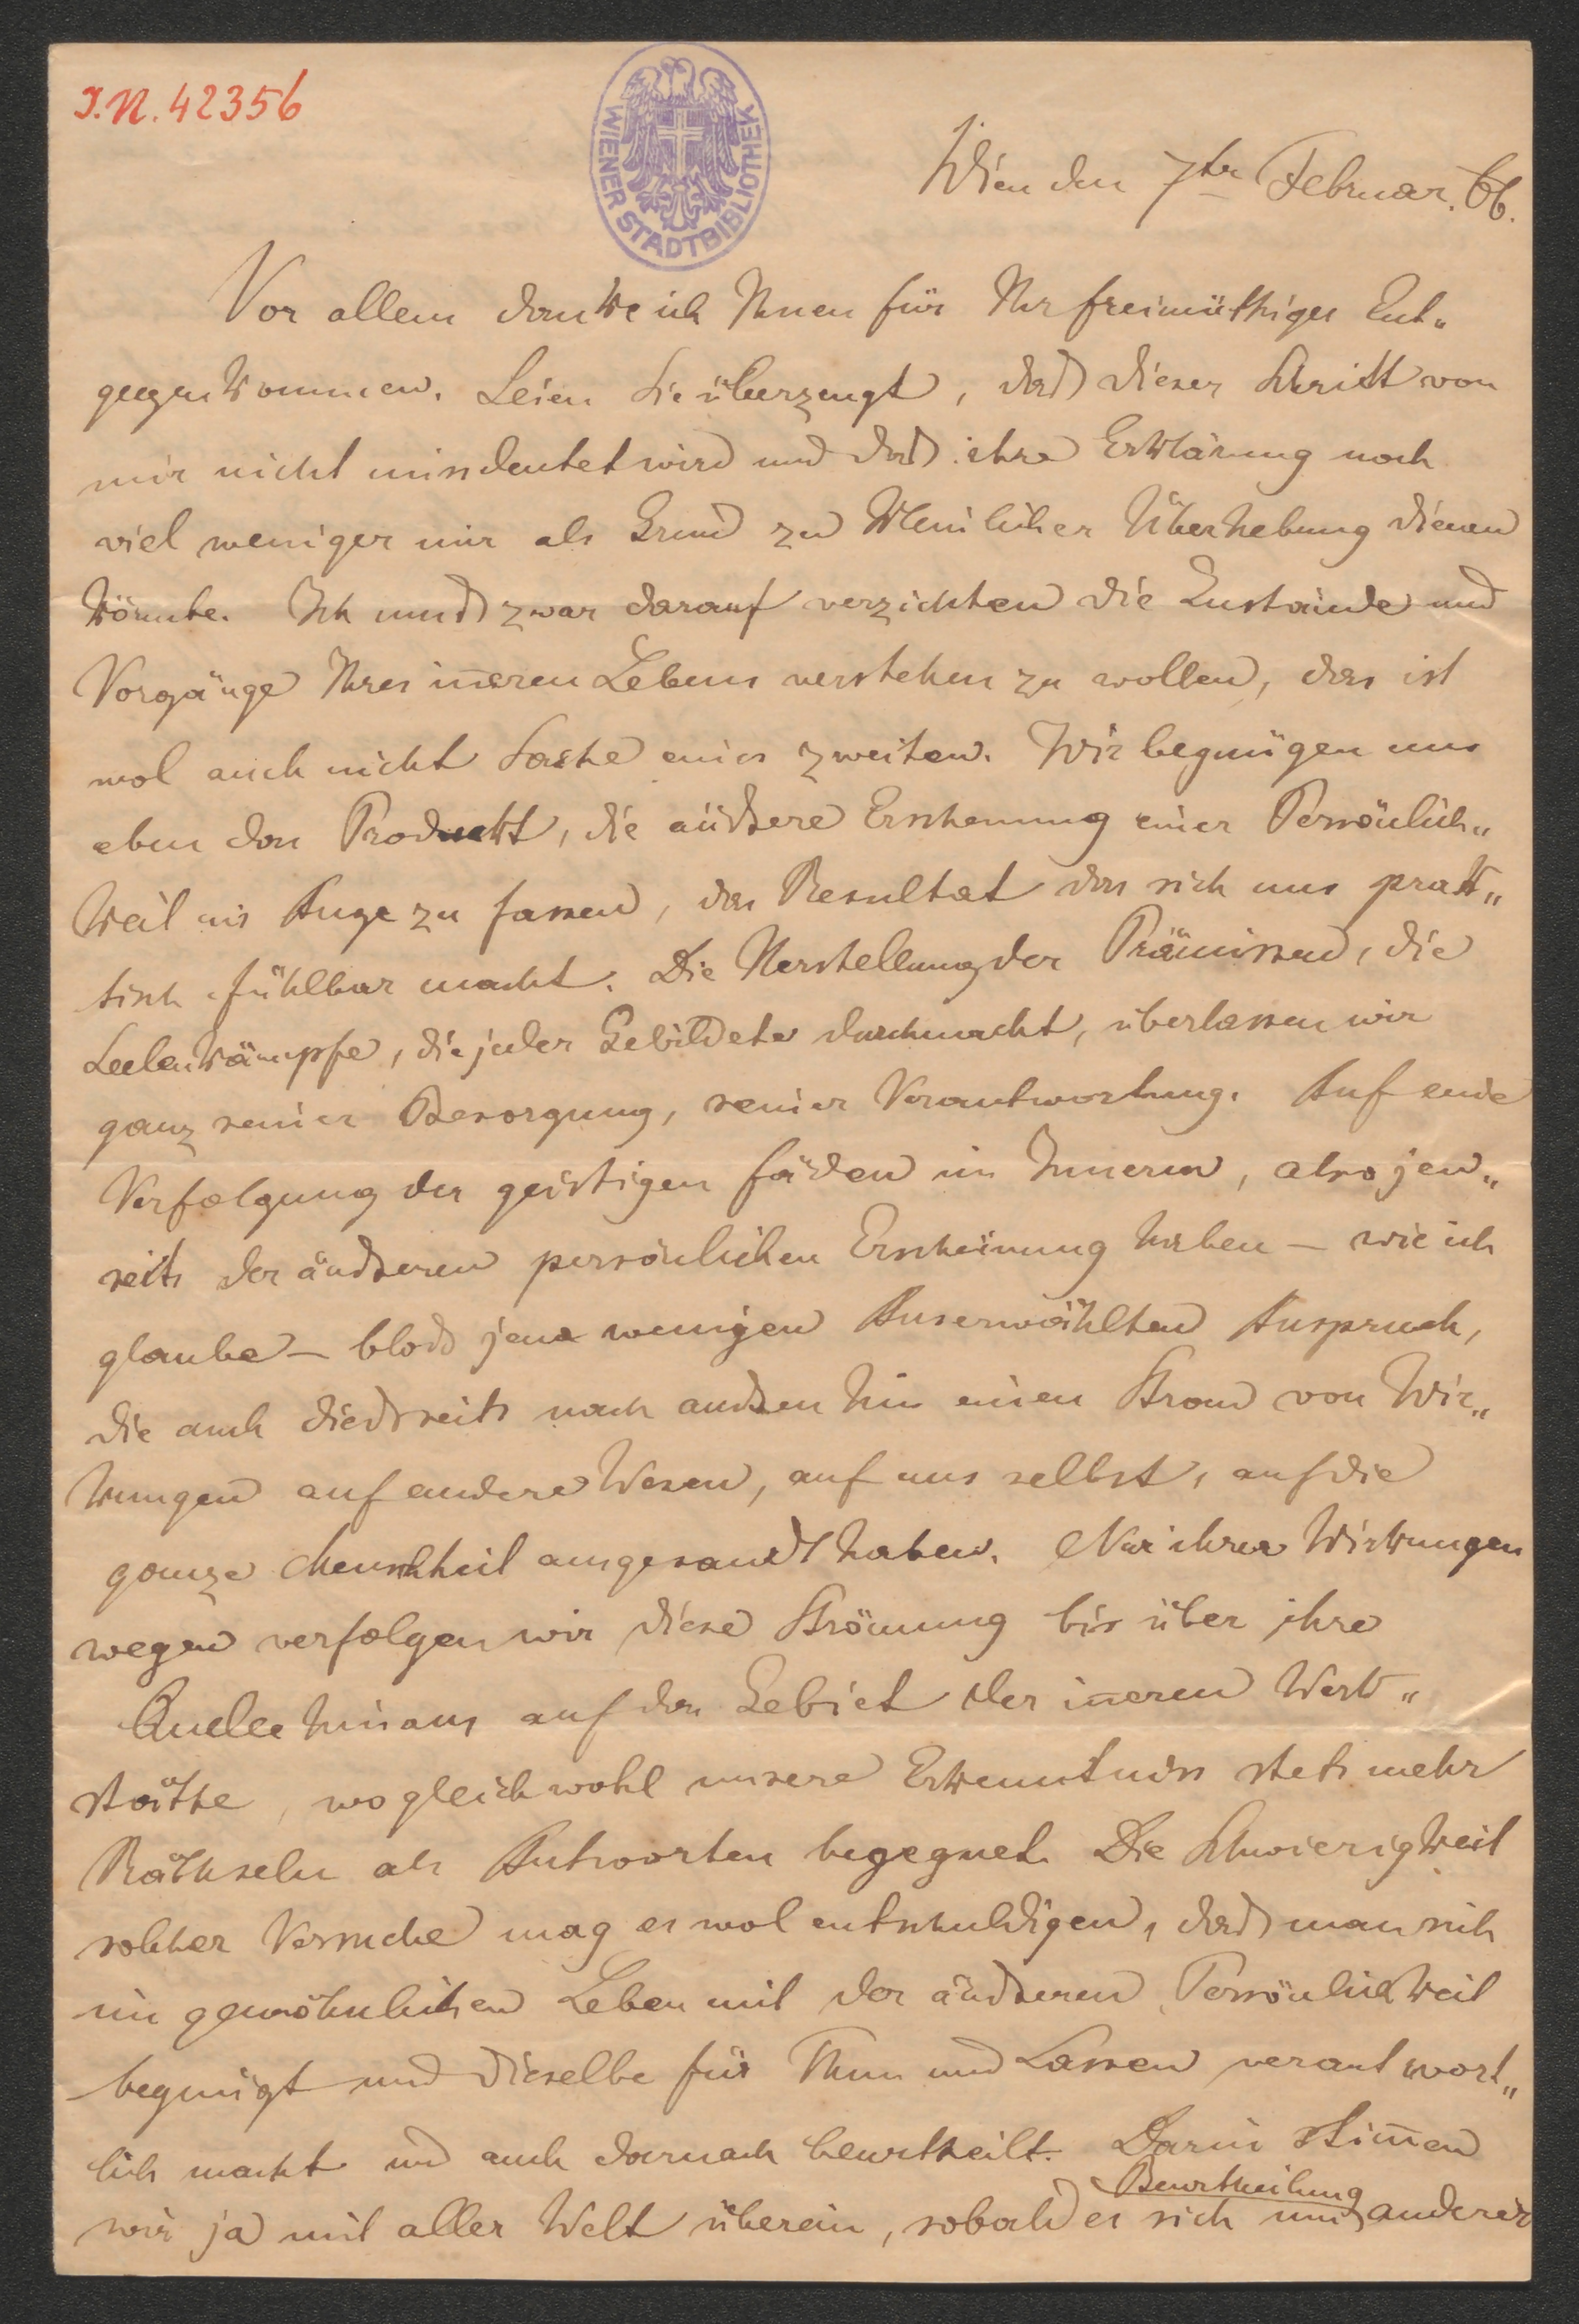 I.N. 42356
WIENER STADTBIBLIOTHEK
Wien den 7ten Februar. 66.
Vor allem danke ich Ihnen für Ihr freimüthiges Ent„
gegenkommen. Seien Sie überzeugt, daß dieser Schritt von
mir nicht misdeutet wird und daß ihre Erklärung noch
viel weniger mir als Grund zu kleinlicher Überhebung dienen
könnte. Ich muß zwar darauf verzichten die Zustände und
Vorgänge Ihres in̄eren Lebens verstehen zu wollen, das ist
wol auch nicht Sache eines zweiten. Wir begnügen uns
eben das Produkt, die äußere Erscheinung einer Persönlich„
keit ins Auge zu fassen, das Resultat das sich uns prak„
tisch fühlbar macht. Die Herstellung der Prämissen, die
Seelenkämpfe, die jeder Gebildete durchmacht, überlassen wir
ganz seiner Besorgung, seiner Verantwortung. Auf eine
Verfolgung der geistigen Fäden im Inneren, also jen„
seits der äußeren persönlichen Erscheinung haben – wie ich
glaube – bloß jene wenigen Auserwählten Anspruch,
die auch dießseits nach außen hin einen Strom von Wir„
kungen auf andere Wesen, auf uns selbst, auf die
ganze Menschheit ausgesandt haben. Nur ihrer Wirkungen
wegen verfolgen wir diese Strömung bis über ihre
Quelle hinaus auf das Gebiet der in̄eren Werk„
stätte, wo gleichwohl unsere Erkenntniss stets mehr
Räthseln als Antworten begegnet. Die Schwierigkeit
solcher Versuche mag es wol entschuldigen, daß man sich
im gewöhnlichen Leben mit der äußeren Persönlichkeit
begnügt und dieselbe für Thun und Lassen verantwort„
lich macht und auch darnach beurtheilt. Darin stim̄en
Beurtheilung
wir ja mit aller Welt überein, sobald es sich um anderer